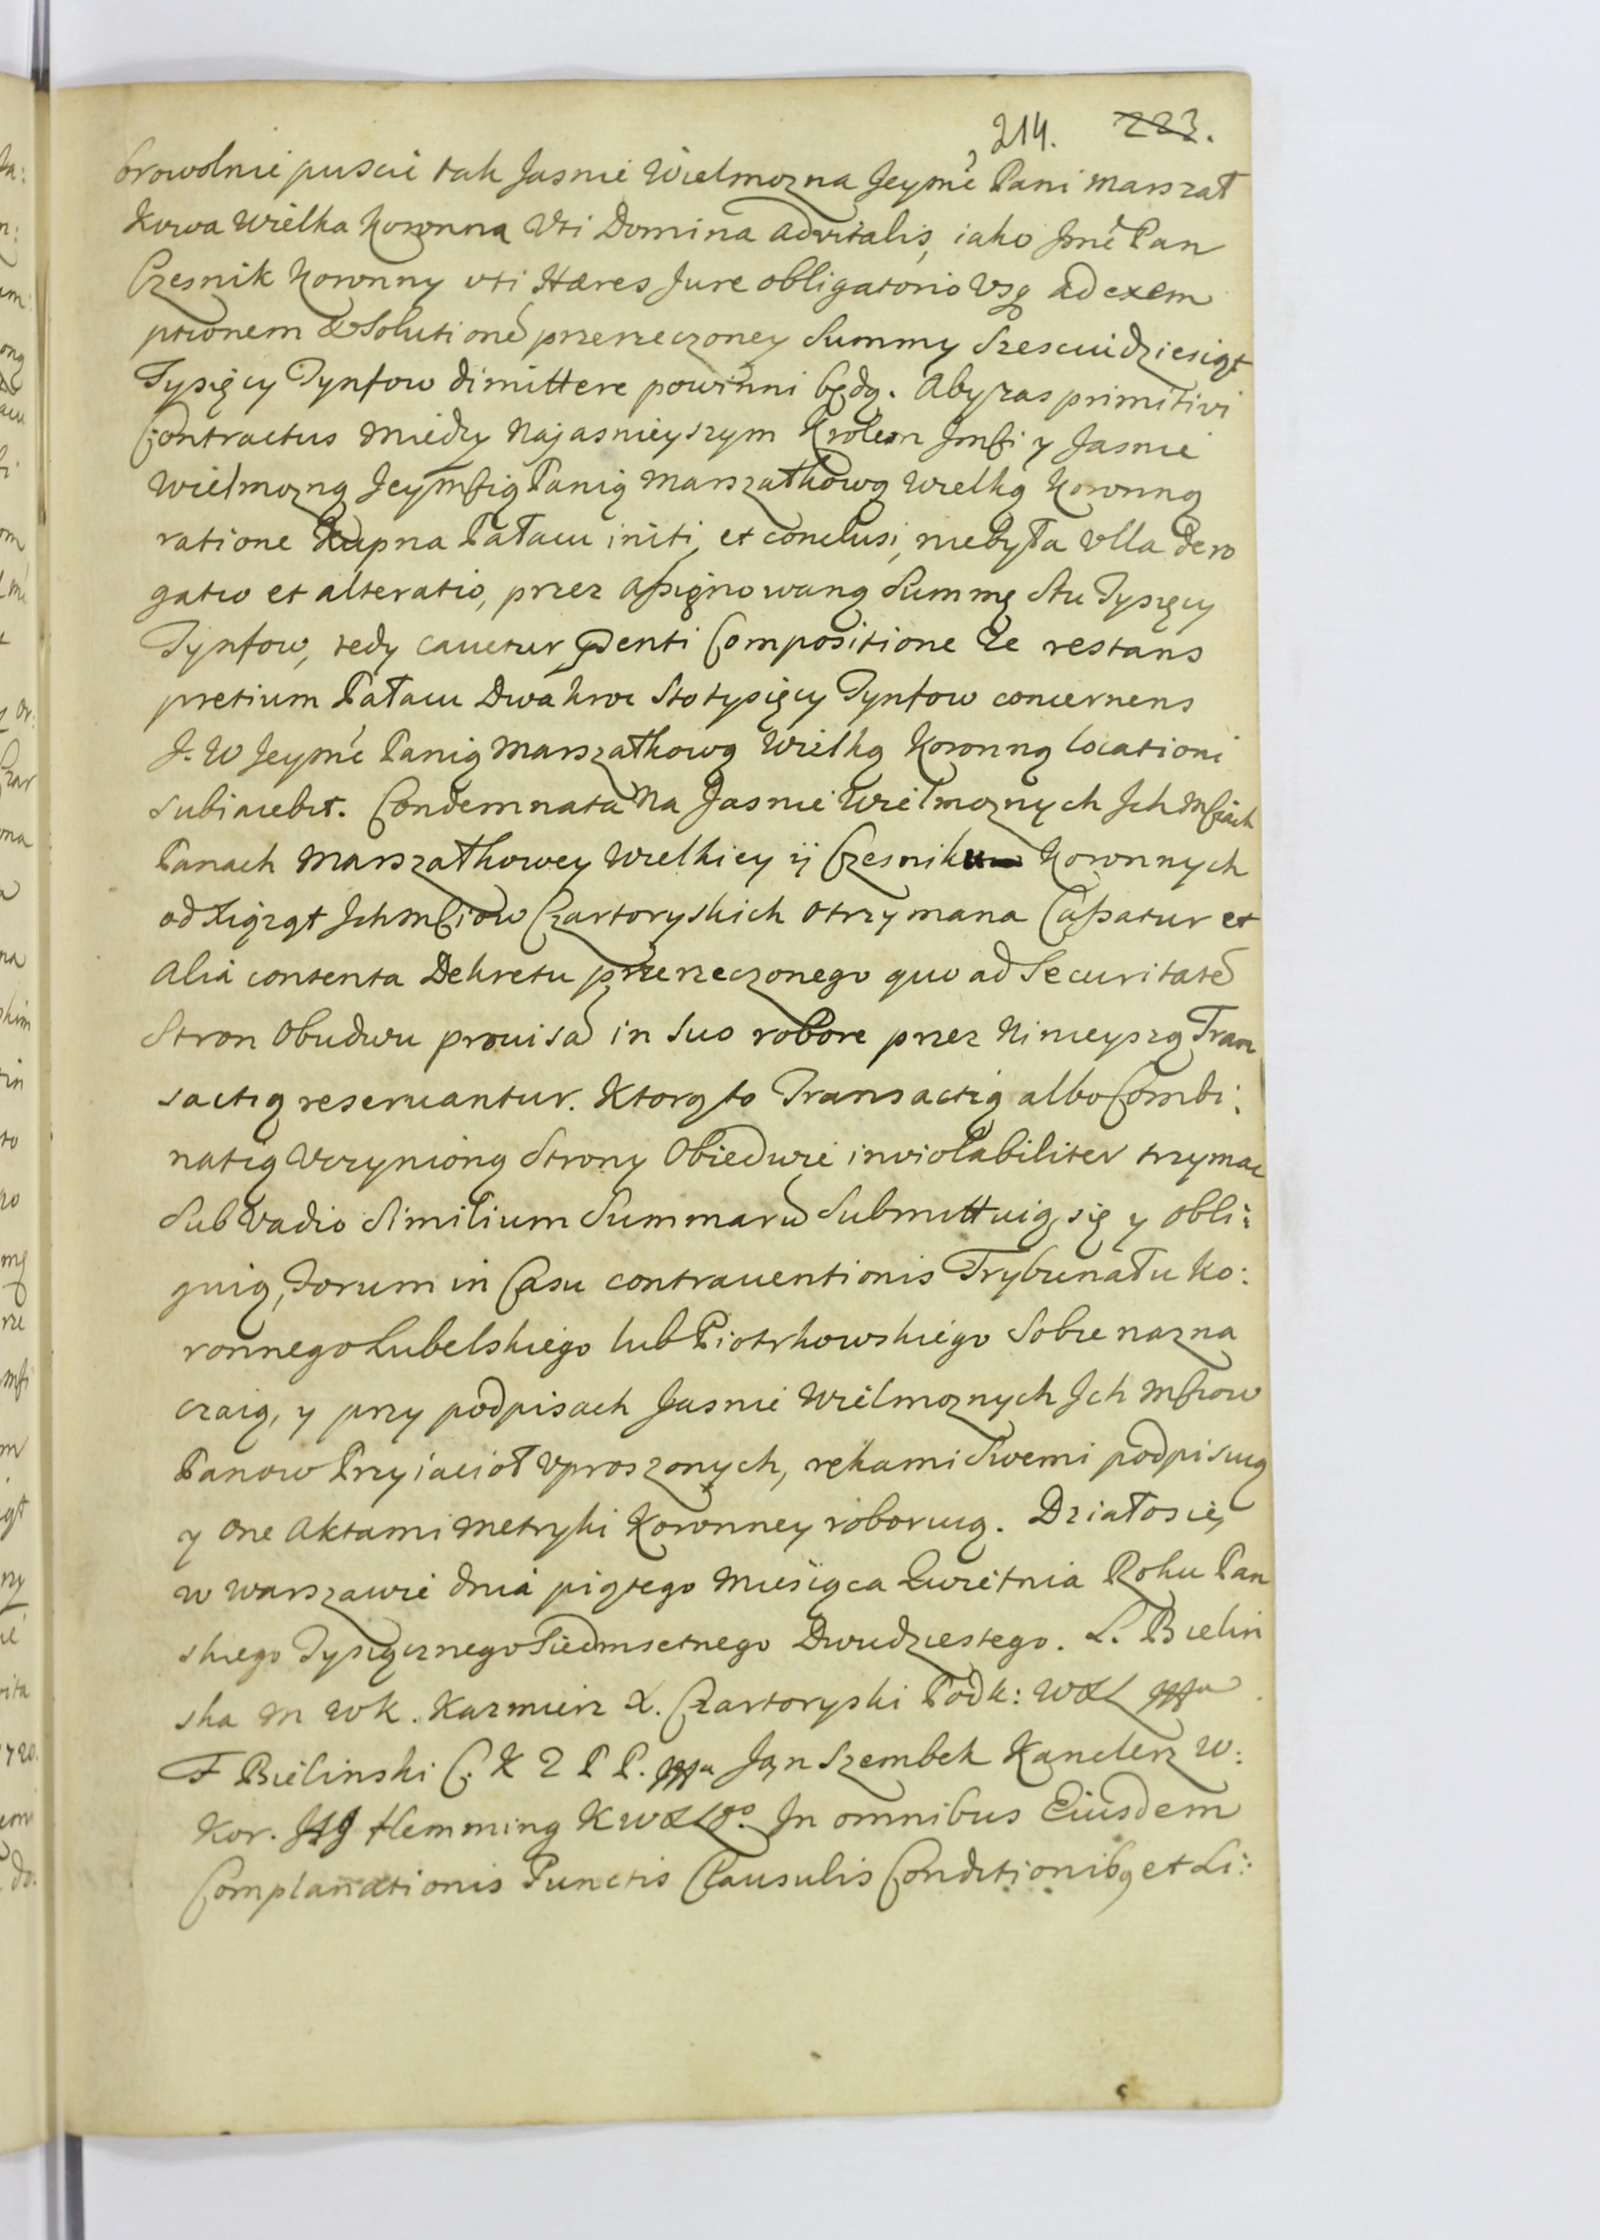 214. 223.
browolnie puscić tak Jasnie Wielmozna Jeymć Pani Marszał
kowa Wielka Koronna Uti Domina advitalis, iako Jmć Pan
Czesnik Koronny uti Hæres Jure obligatorio Usq ad exem
ptionem & Solutionē przerzeczoney Summy Szesciudziesiąt
Tysięcy Tynfow dimittere powinni będą. Aby zas primitivi
Contractus między Najasnieyszym Krolem Jmści y Jasnie
Wielmozną Jeymścią Panią Marszałkową Wielką Koronną
ratione Kupna Pałacu initi, et conclusi, niebyła Ulla dero
gatio et alteratio, przez assignowaną Summę Stu Tysięcy
Tynfow, tedy cavetur, Pnti Compositione Ze restans
pretium Pałacu Dwakroć Stotysięcy Tynfow concernens
J. W Jeymć Panią Marszałkową Wielką Koronną locationi
subiacebit. Condemnata Na Jasnie Wielmoznych Ich Mściach
Panach Marszałkowey Wielkiey ij Czesniku Koronnych
od Xiążąt Ichmściow Czartoryskich otrzymana Cassatur et
Alia contenta Dekretu przerzeczonego quo ad Securitatē
Stron Obudwu provisa in suo robore przez Ninieyszą Tran
sactią reservantur. Ktorą to Transactią albo Combi:
natią Uczynioną Strony Obiedwie inviolabiliter trzymac
Sub Vadio Similium Summarū Submittuią się y obli:
guią, Forum in Casu contraventionis Trybunału Ko:
ronnego Lubelskiego lub Piotrkowskiego Sobie nazna
czaią, y przy podpisach Jasnie Wielmoznych Ich Mściow
Panow Przyiacioł Uproszonych, rękami Swemi podpisuią
y one Aktami Metryki Koronney roboruią. Działo się,
w Warszawie dnia piątego Miesiąca Kwietnia Roku Pan
skiego Tysiącznego Siedmsetnego Dwudziestego. L. Bielin
ska M W K. Kazmierz X. Czartoryski Podk: WXL mpp
F Bielinski C. K Z P P. mpp Jan Szembek Kanclerz W:
Kor. Flemming K W X L In omnibus Eiusdem
Complanationis Punctis Clausulis Conditionibq et Li: